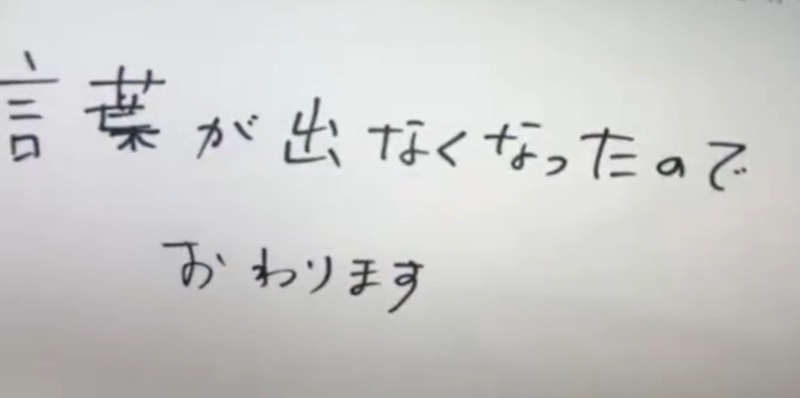 言葉が出なくなったので
おわります